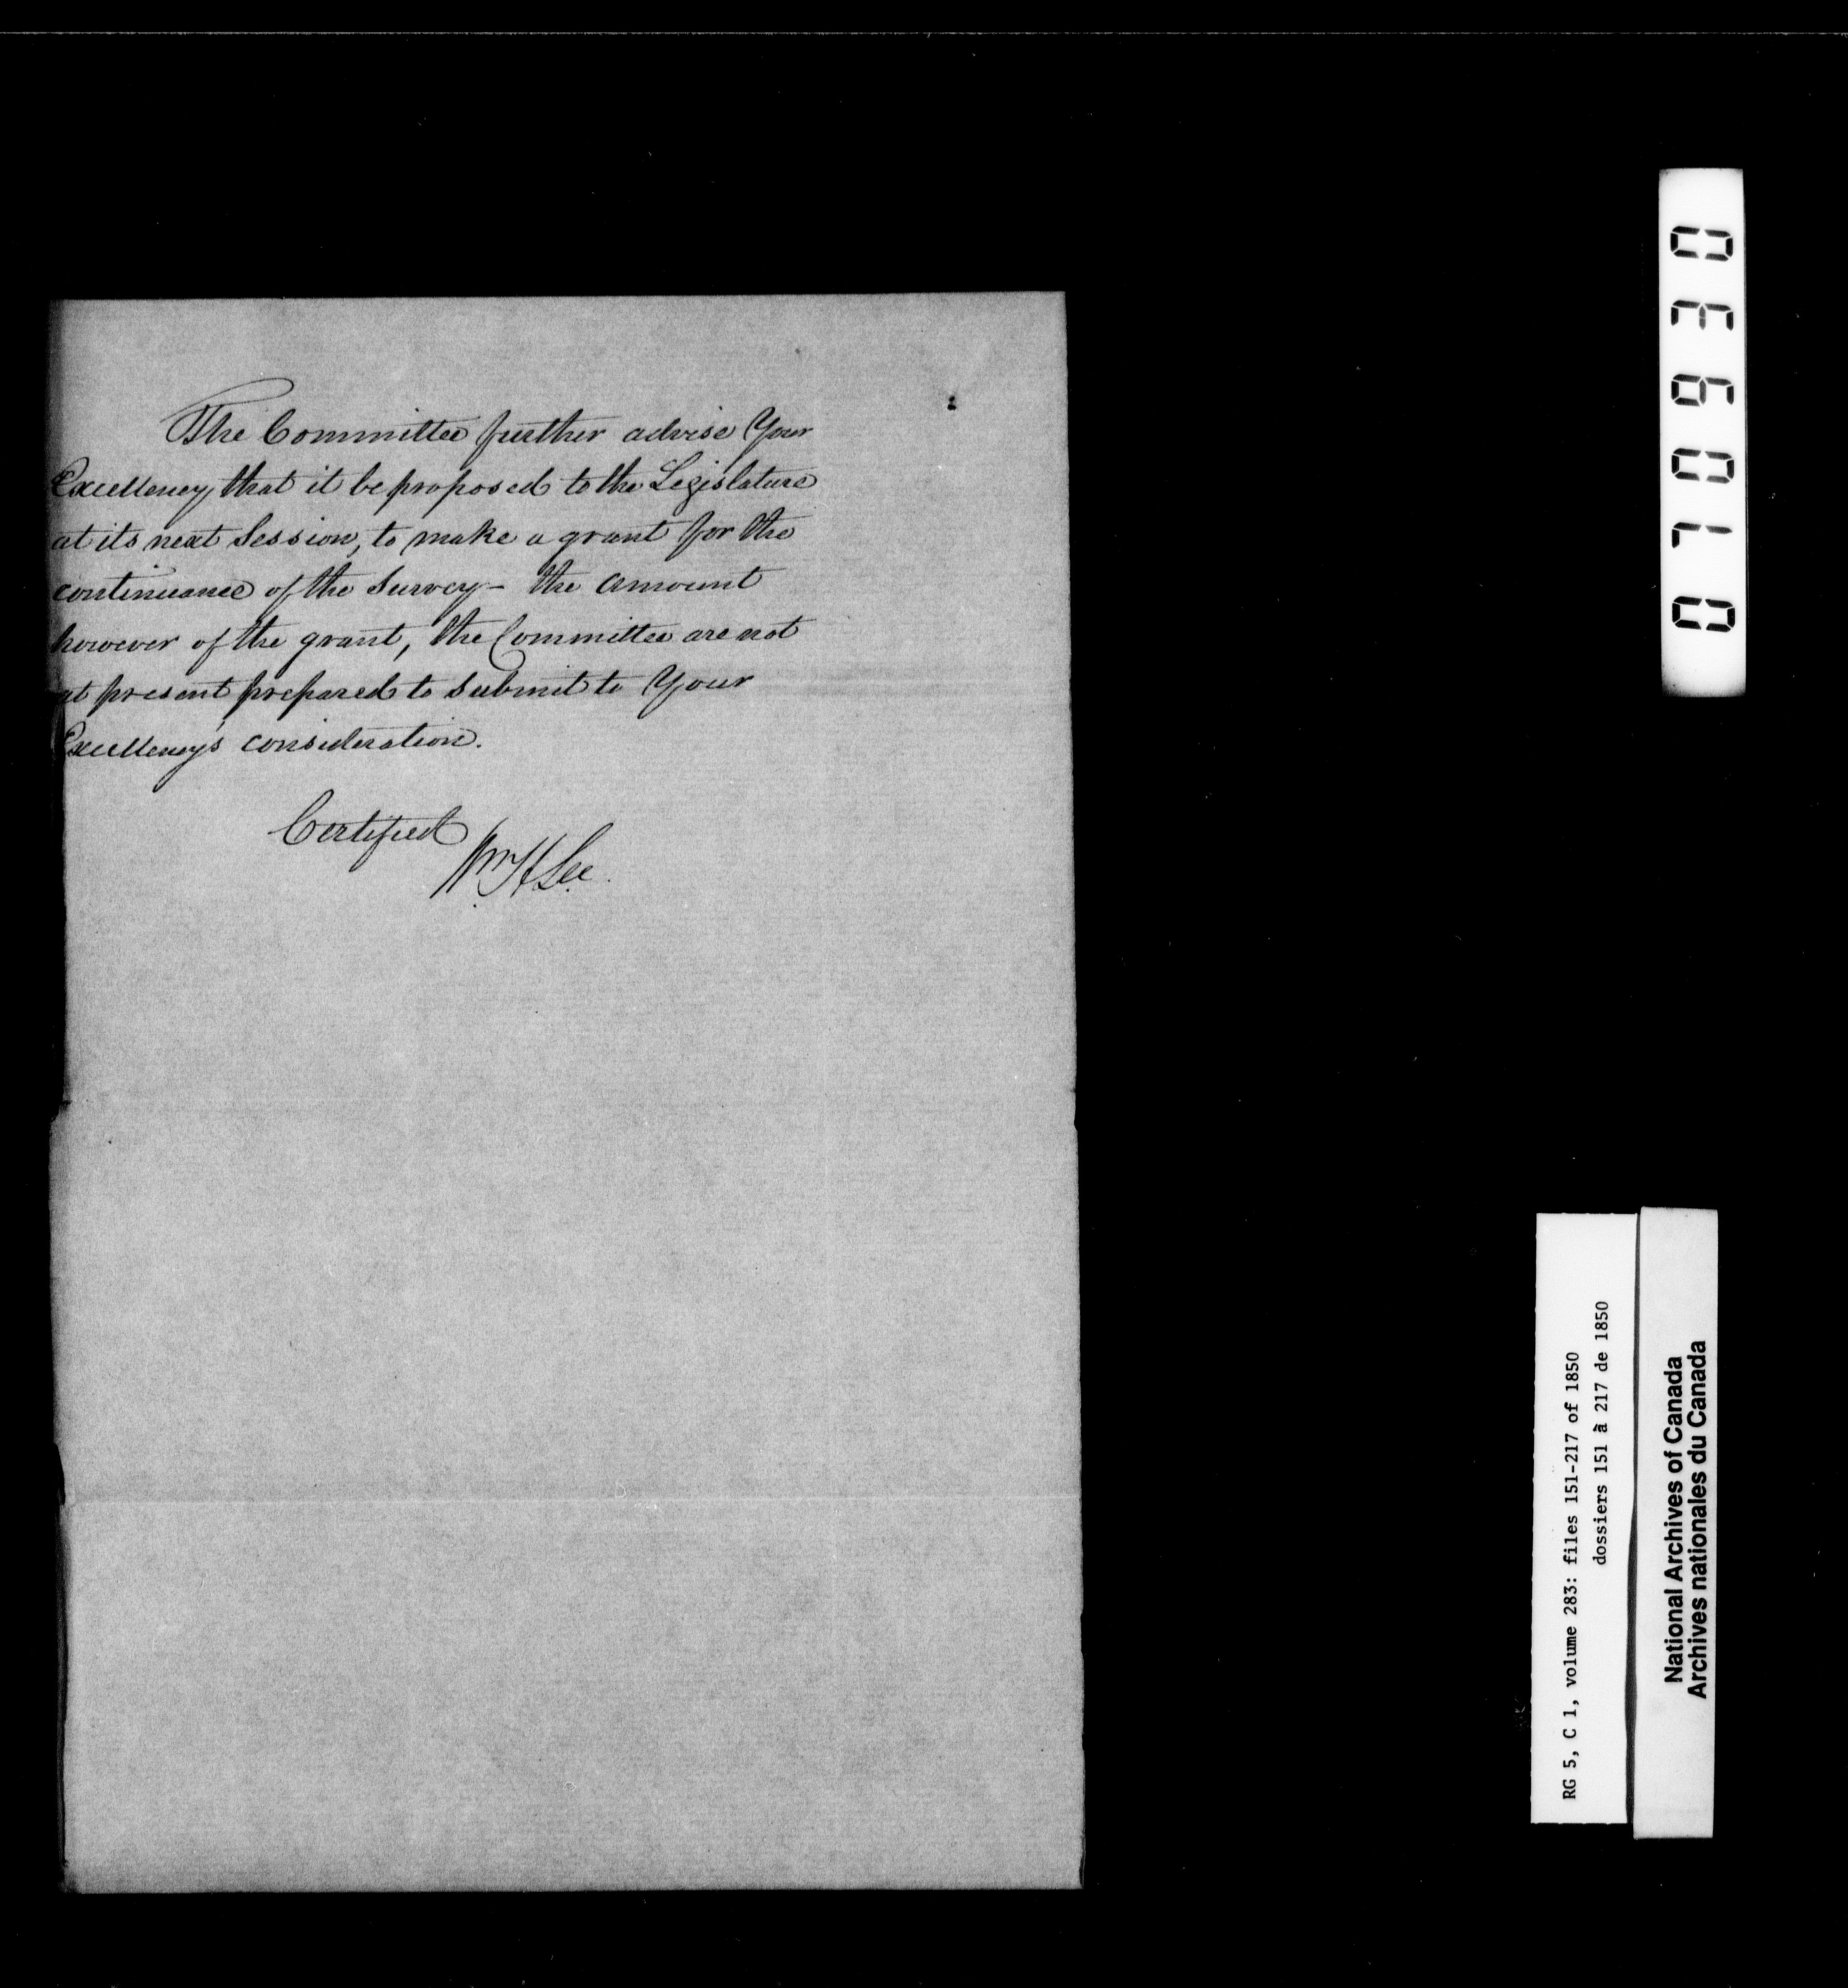 The Committee further advise Your
Excellency that it be proposed to the Legislature
at its next Session, to make a grant for the
continuance of the Survey – the amount
however of the grant, the Committee are not
at present prepared to submit to Your
Excellency's consideration.
Certified
Wm H Lee.
070930
RG 5, C 1, volume 283: files 151-217 of 1850
dossiers 151 à 217 de 1850
National Archives of Canada
Archives nationales du Canada